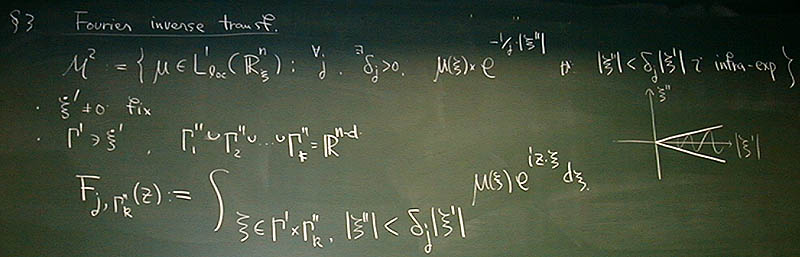 §3 Fourier inverse transf.
M² := { μ ∈ L¹_loc(ℝⁿ_ξ) ; ∀j, ∃δ_j>0, μ(ξ)×e^{-1/j·|ξ''|} が |ξ''|<δ_j|ξ'| で infra-exp }
· ξ'≠0 fix
· Γ'∋ξ', Γ''_1∪Γ''_2∪…∪Γ''_k=ℝ^{n-d}
ξ''
|ξ'|
F_{j,Γ''_k}(z) := ∫_{ξ∈Γ'×Γ''_k, |ξ''|<δ_j|ξ'|} μ(ξ)e^{iz·ξ}dξ.